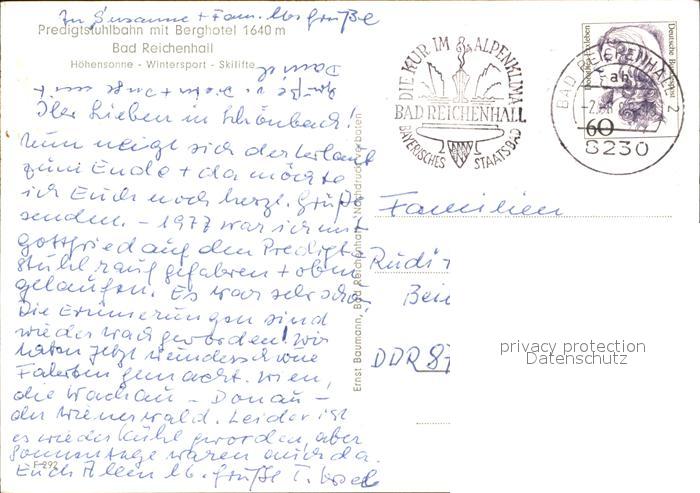 In Susanne + Fam. lb. Grüße
Predigtstuhlbahn mit Berghotel 1640 m
Bad Reichenhall
Höhensonne - Wintersport - Skilifte
Ihr Lieben in Schönbach!
Nun neigt sich der Urlaub
zum Ende + da möchte
ich Euch noch herzl. Grüße
senden. - 1977 war ich mit
Gottfried auf den Predigt-
stuhl rauf gefahren + oben
gelaufen. Es war sehr schön
Die Erinnerungen sind
wieder wach geworden! Wir
haben jetzt wunderschöne
Fahrten gemacht. Wien,
die Wachau - Donau -
der Wienerwald. Leider ist
es wieder kühl geworden, aber
Sonnentage waren auch da.
Euch Allen lb. Grüße T.
F 292
Ernst Baumann, Bad Reichenhall Nachdruck verboten
DIE KUR IM ALPENKLIMA
BAD REICHENHALL
BAYERISCHES STAATSBAD
BAD REICHENHALL 2
ah
8230
Deutsche Bundespost
60
Familien
Rudi
DDR 87
privacy protection
Datenschutz